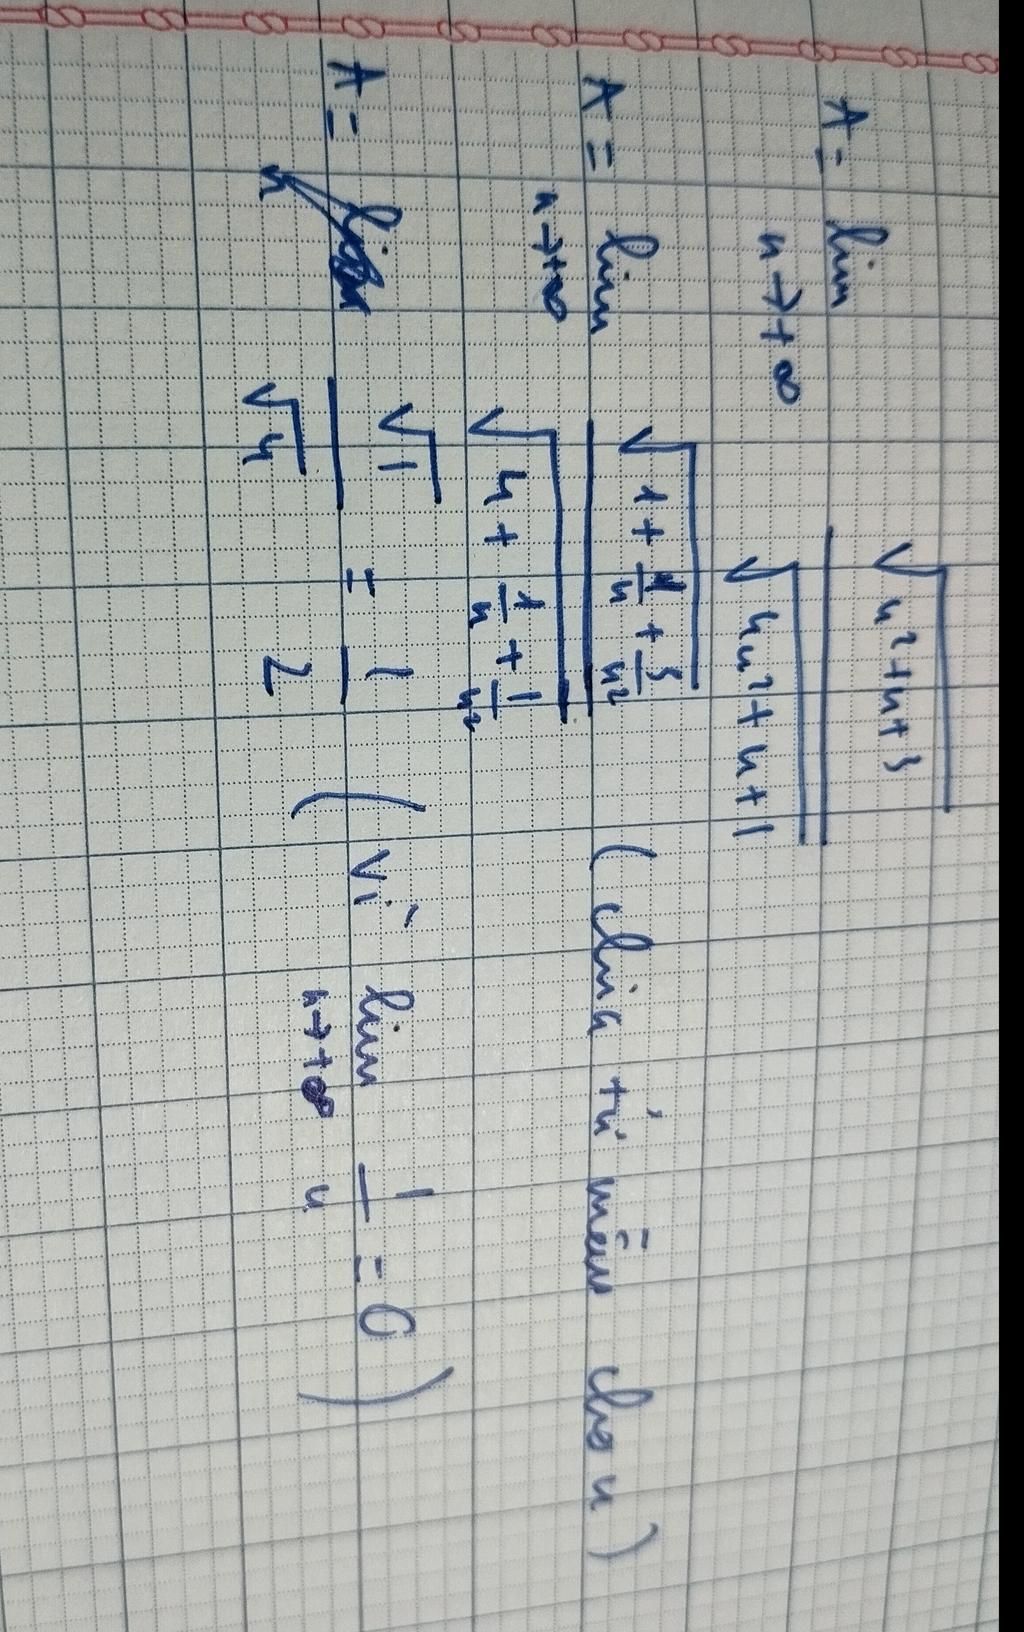 A = lim n→+∞ √(n²+n+3) / √(4n²+n+1)
A = lim n→+∞ √(1 + 1/n + 3/n²) / √(4 + 1/n + 1/n²) (chia tử mẫu cho n)
A = √1 / √4 = 1/2 (vì lim n→+∞ 1/n = 0)